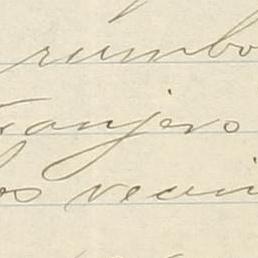 rumbo
tranjero
los vecin